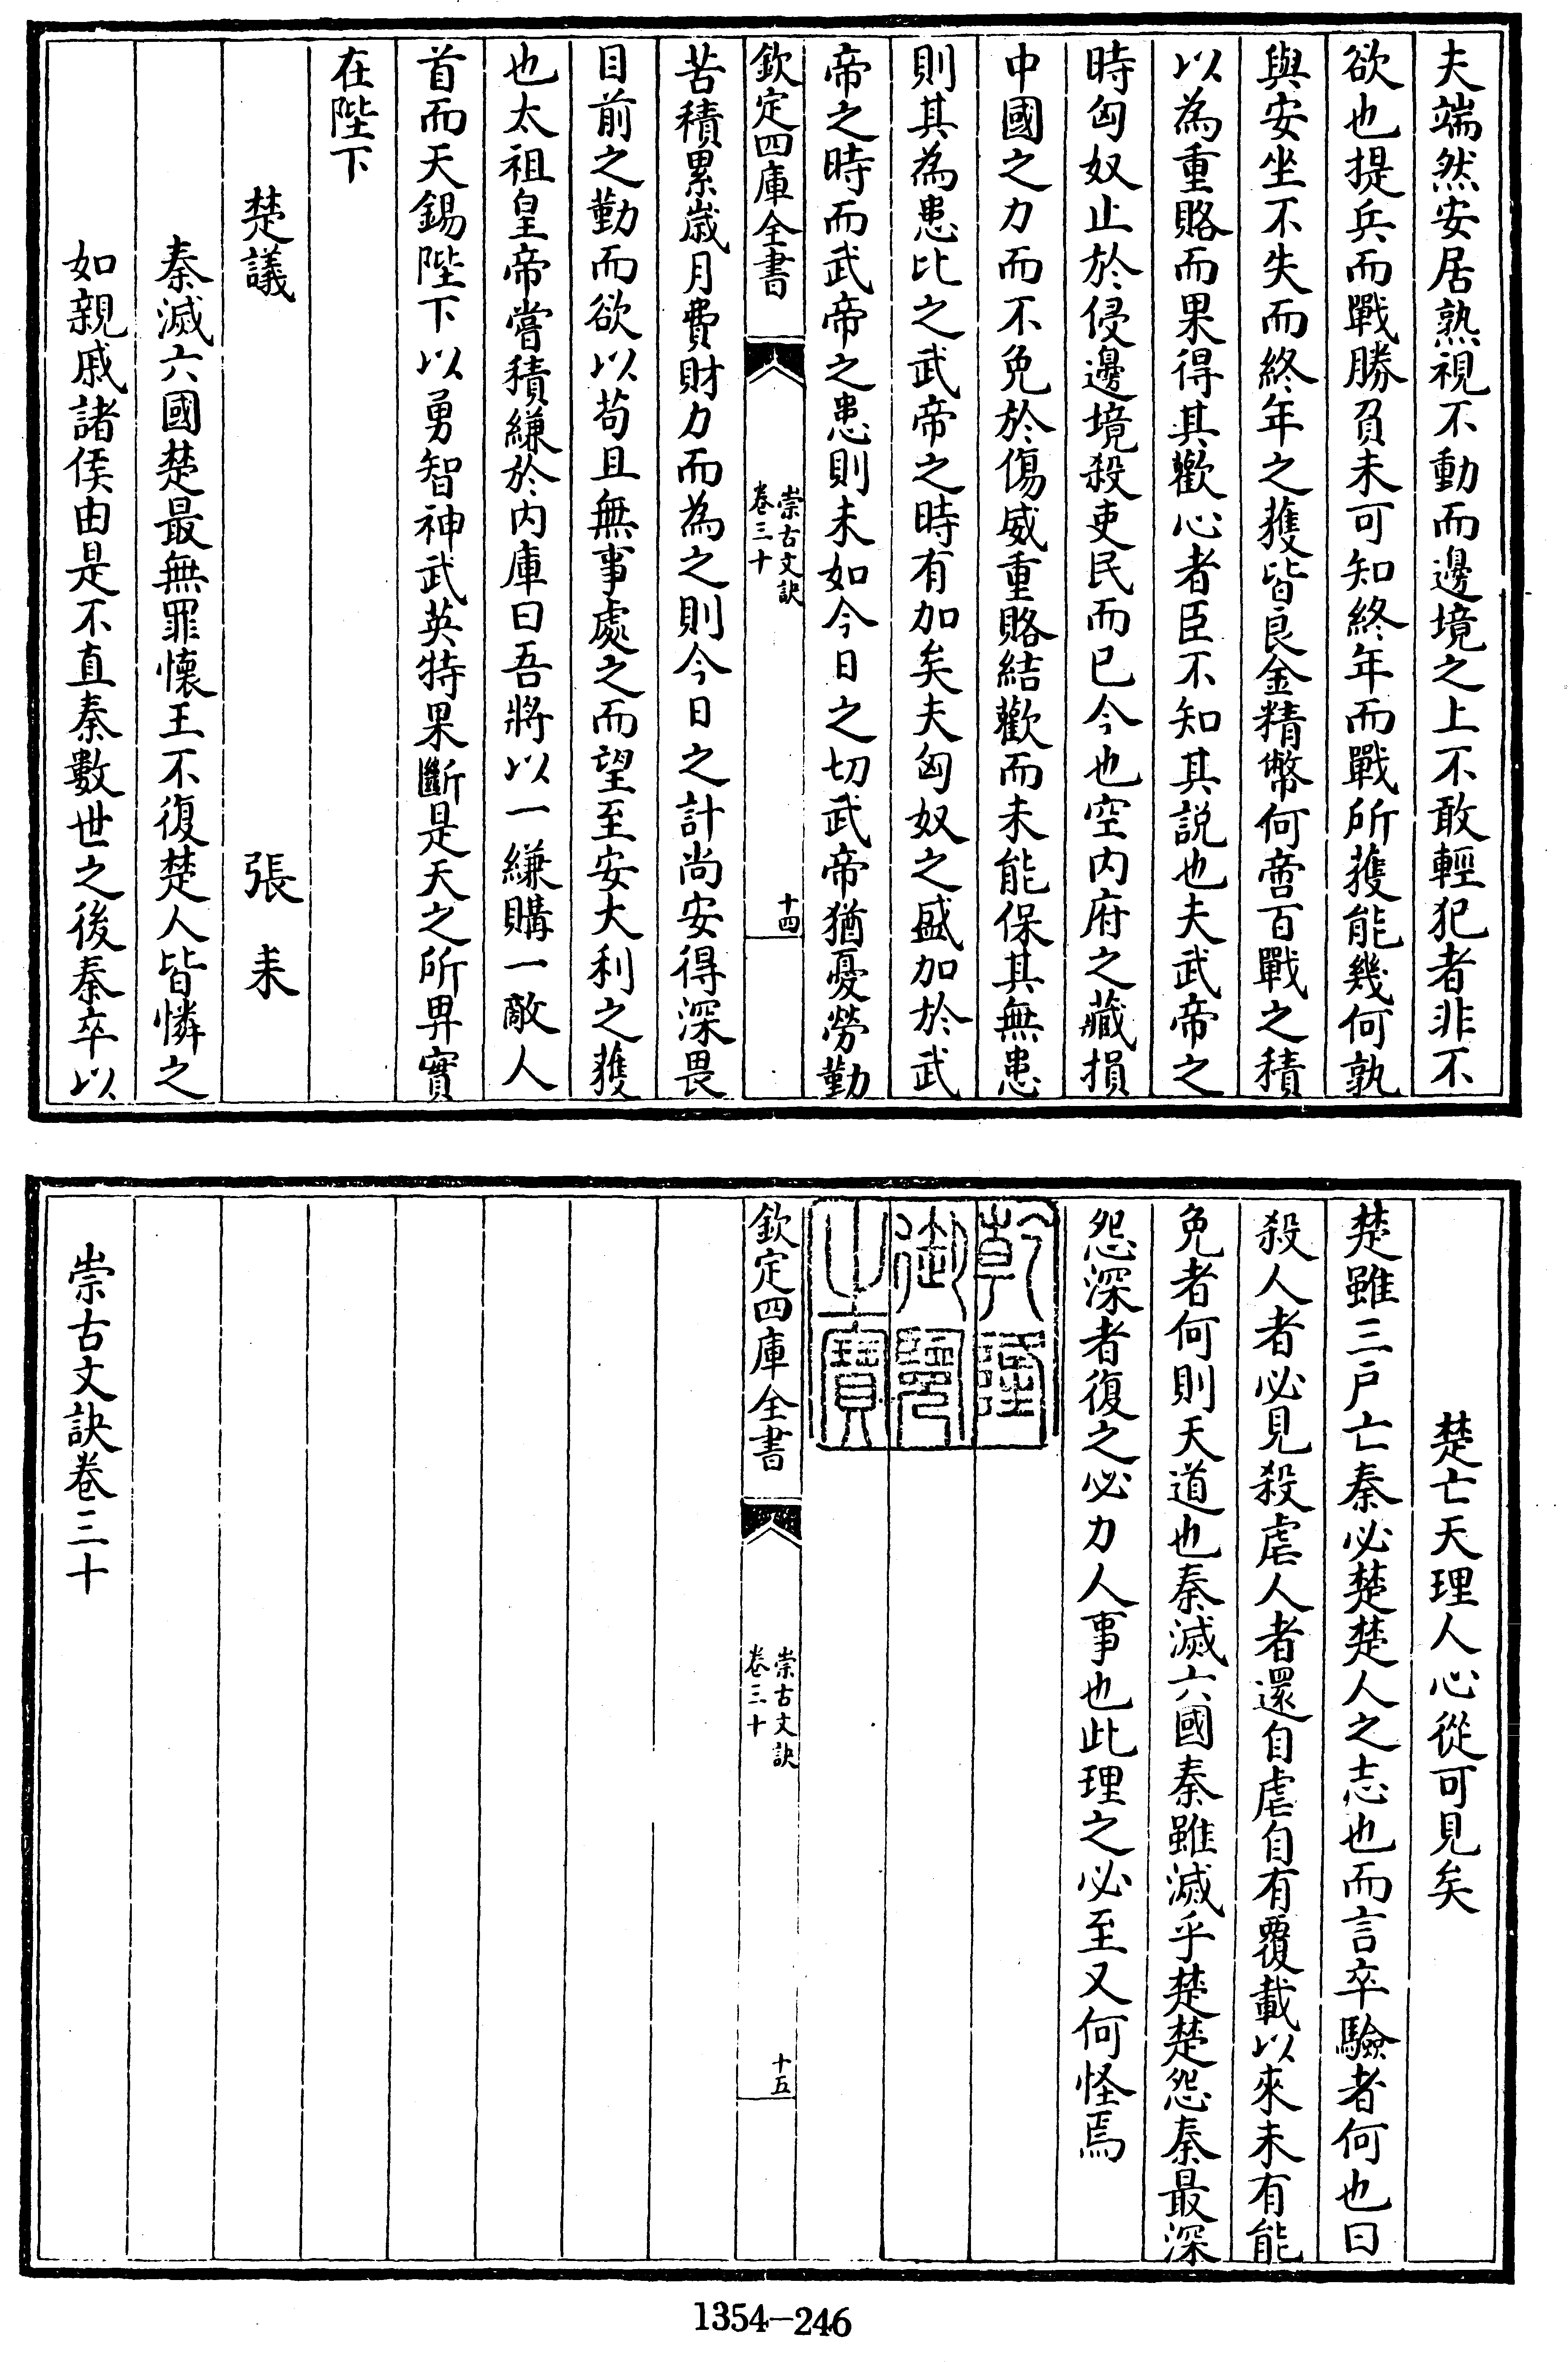 夫端然安居熟視不動而邊境之上不敢輕犯者非不
欲也提兵而戰勝負未可知終年而戰所獲能幾何孰
與安坐不失而終年之獲皆良金精幣何啻百戰之積
以為重賂而果得其歡心者臣不知其説也夫武帝之
時匈奴止於侵邊境殺吏民而已今也空内府之藏損
中國之力而不免於傷威重賂結歡而未能保其無患
則其為患比之武帝之時有加矣夫匈奴之盛加於武
帝之時而武帝之患則未如今日之切武帝猶憂勞勤
欽定四庫全書
崇古文訣
卷三十
十四
苦積累歳月費財力而為之則今日之計尚安得深畏
目前之勤而欲以苟且無事處之而望至安大利之獲
也太祖皇帝嘗積縑於内庫曰吾將以一縑購一敵人
首而天錫陛下以勇智神武英特果斷是天之所畀實
在陛下
楚議 張耒
秦滅六國楚最無罪懷王不復楚人皆憐之
如親戚諸侯由是不直秦數世之後秦卒以
楚亡天理人心從可見矣
楚雖三戸亡秦必楚楚人之志也而言卒驗者何也曰
殺人者必見殺虐人者還自虐自有覆載以來未有能
免者何則天道也秦滅六國秦雖滅乎楚楚怨秦最深
怨深者復之必力人事也此理之必至又何怪焉
乾隆
御覽
之寶
欽定四庫全書
崇古文訣
卷三十
十五
崇古文訣卷三十
1354-246